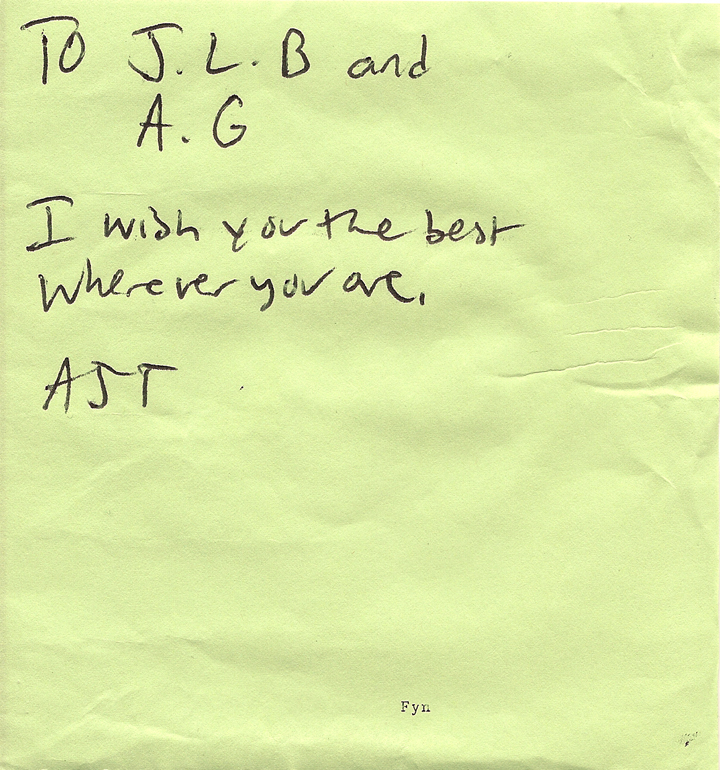 To J. L. B and
A. G
I wish you the best
wherever you are.
AJT
Fyn